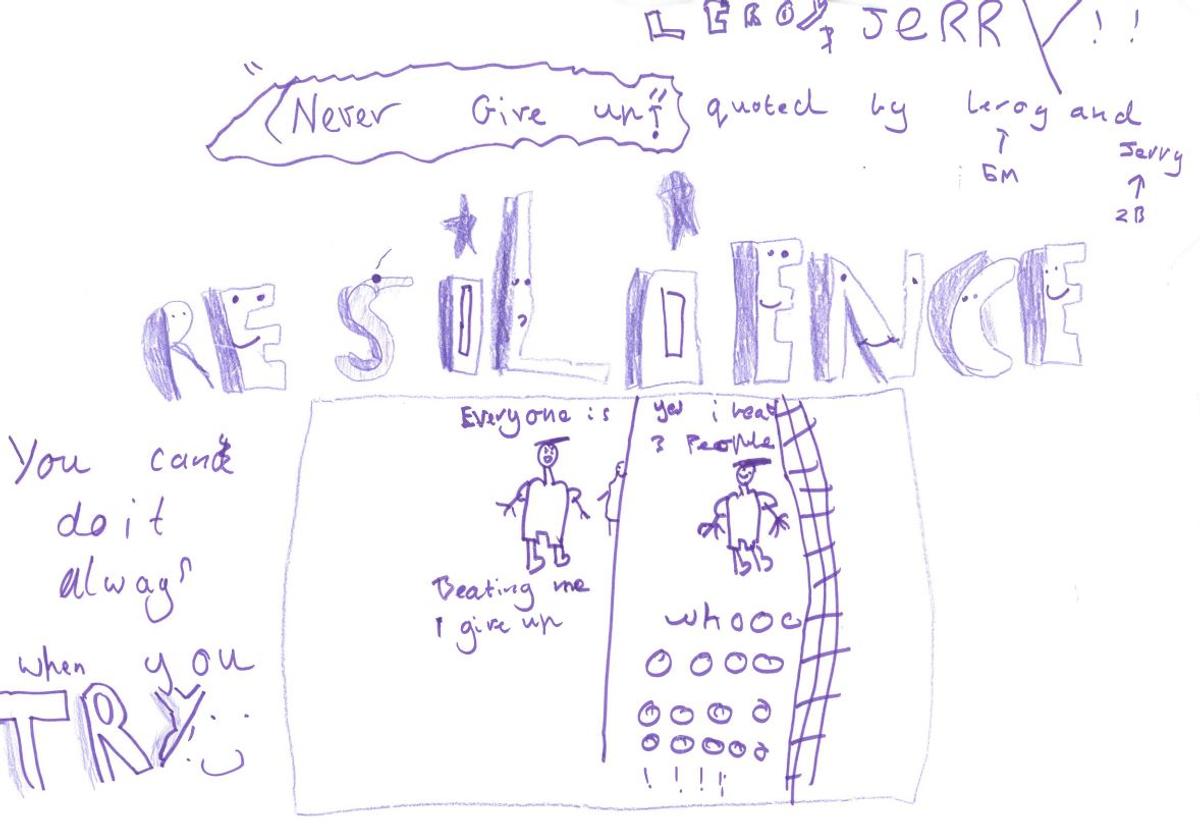 LEROY & JERRY!!
"Never Give up!" quoted by leroy and
Jerry
6M
2B
RESiLiENCE
You can
do it
always
when you
TRY
Everyone is
Beating me
I give up
yes i beat
3 People
whooo
o o o o
o o o o
o o o o o
! ! ! !